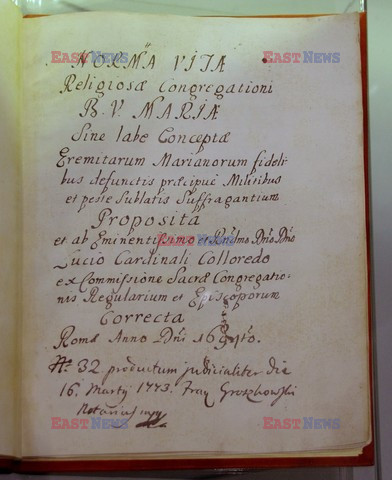 EASTNEWS EASTNEWS
NORMA VITÆ
Religiosæ Congregationi
B. V. MARIÆ
Sine labe Conceptæ
Eremitarum Marianorum fideli
bus defunctis præcipuè Militibus
et peste Sublatis Suffragantium
Proposita
EASTNEWS
et ab Eminentissimo et Dño Dño
Lucio Cardinali Colloredo
ex Commissione Sacræ Congregatio-
nis Regularium et Episcoporum
Correcta
Romæ Anno Dñi
No. 32 productum judicialiter die
16. Martÿ 1773. Fray Groszkowski
Notarius
EASTNEWS EASTNEWS